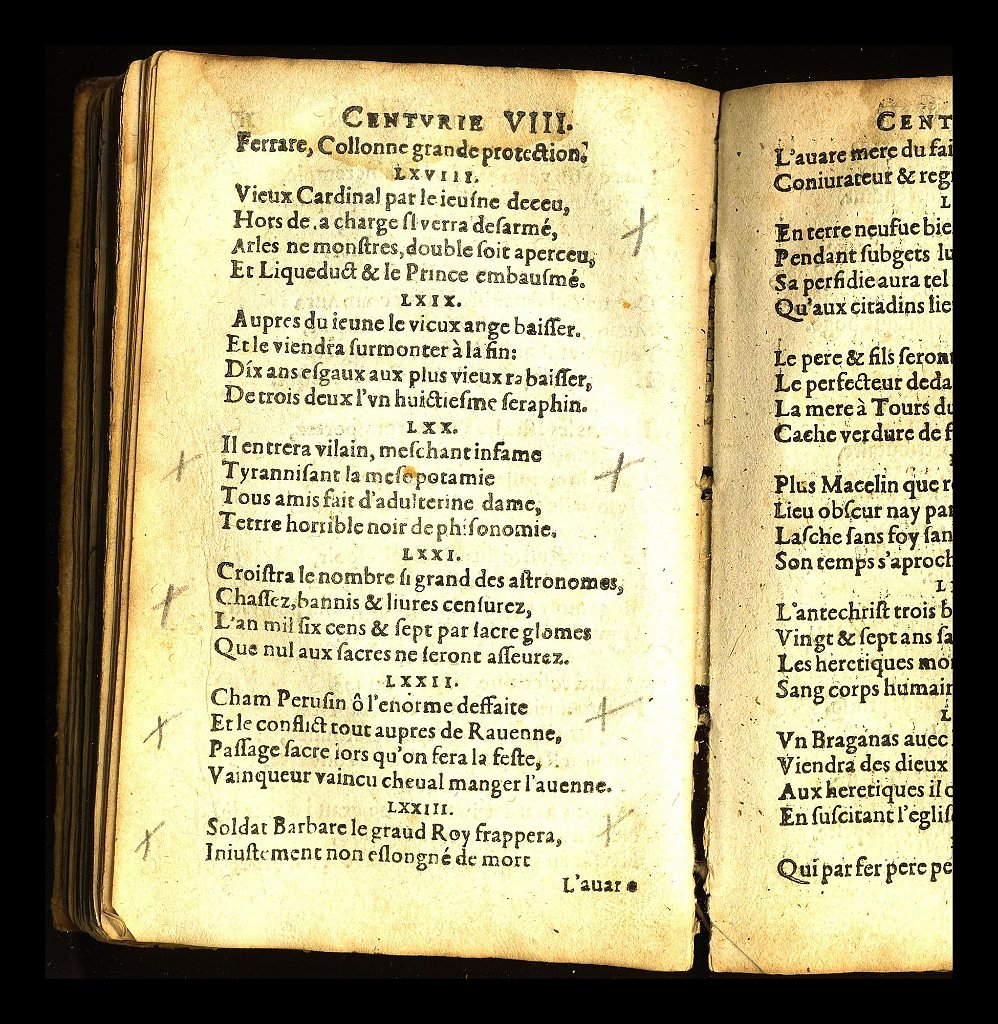 CENTVRIE VIII.
Ferrare, Collonne grande protection.
LXVIII.
Vieux Cardinal par le ieuſne deceu,
Hors de .a charge ſi verra deſarmé,
Arles ne monſtres, double ſoit aperceu,
Et Liqueduct & le Prince embauſmé.
LXIX.
Aupres du ieune le vieux ange baiſſer.
Et le viendra ſurmonter à la fin:
Dix ans eſgaux aux plus vieux ra baiſſer,
De trois deux l'vn huictieſme ſeraphin.
LXX.
Il entrera vilain, meſchant infame
Tyranniſant la meſopotamie
Tous amis fait d'adulterine dame,
Tetrre horrible noir de phiſonomie.
LXXI.
Croiſtra le nombre ſi grand des aſtronomes,
Chaſſez, bannis & liures cenſurez,
L'an mil ſix cens & ſept par ſacre glomes
Que nul aux ſacres ne ſeront aſſeurez.
LXXII.
Cham Peruſin ô l'enorme deffaite
Et le conflict tout aupres de Rauenne,
Paſſage ſacre lors qu'on fera la feſte,
Vainqueur vaincu cheual manger l'auenne.
LXXIII.
Soldat Barbare le graud Roy frappera,
Iniuſtement non eſlongné de mort
L'auar
CENT
L'auare mere du fai
Coniurateur & reg
L
En terre neufue bie
Pendant ſubgets lu
Sa perfidie aura tel
Qu'aux citadins lie
Le pere & fils ſeront
Le perſecteur deda
La mere à Tours du
Cache verdure de f
Plus Macelin que r
Lieu obſcur nay par
Laſche ſans foy ſan
Son temps s'aproch
L
L'antechriſt trois b
Vingt & ſept ans ſa
Les heretiques mo
Sang corps humain
L
Vn Braganas auec
Viendra des dieux
Aux heretiques il o
En ſuſcitant l'egliſ
Qui par fer pere pe